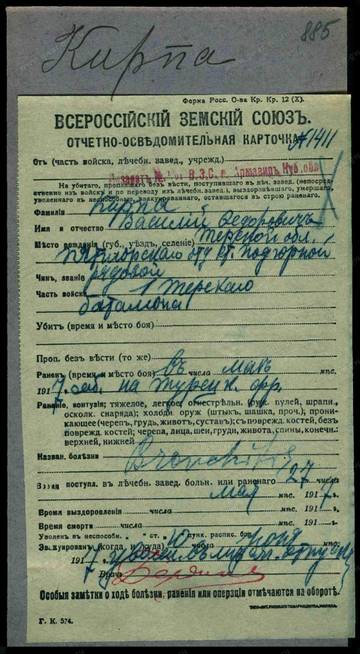 885
Кирпа
Форма Росс. О-ва Кр. Кр. 12 (X).
ВСЕРОССІЙСКІЙ ЗЕМСКІЙ СОЮЗЪ.
ОТЧЕТНО-ОСВѢДОМИТЕЛЬНАЯ КАРТОЧКА
№ 1411
Отъ (часть войска, лѣчебн. завед., учрежд.)
В.З.С. г. Армавиръ Куб. обл.
На убитаго, пропавшаго безъ вѣсти, поступившаго въ лѣч. завед. (непосред-
ственно изъ войскъ и по переводу изъ лѣчебн. завед.), выздоровѣвшаго, умершаго,
уволеннаго неспособн., эвакуированнаго, оставшагося въ строю раненаго.
Фамилія Кирпа
Имя и отчество Василій Федоровичъ
Мѣсто рожденія (губ., уѣздъ, селеніе) Терской обл.
Пятигорскаго отд. ст. Подгорной
Чинъ, званіе рядовой
Часть войскъ 1 Терскаго
баталіона
Убитъ (время и мѣсто боя)
Проп. безъ вѣсти (то же)
Раненъ (время и мѣсто боя) въ маѣ числа мѣс.
191 7. заб. на Турецк. фр.
Раненіе, контузія: тяжелое, легкое, огнестрѣльн. (руж. пулей, шрапн.,
осколк. снаряда); холодн. оруж. (штыкъ, шашка, проч.); прони-
кающее (черепъ, грудь, животъ, суставъ); съ поврежд. костей, безъ
поврежд. костей; черепа, лица, шеи, груди, живота, спины, конечн.
верхней, нижней.
Назван. болѣзни Bronchitis
Когда поступ. въ лѣчебн. завед. больн. или раненаго 27
числа мая мѣс. 1917
Время выздоровленія мѣс. 191
Время смерти числа мѣс. 191
Уволенъ въ неспособн. ст. 10 пункт. распис. бол.
Эвакуированъ (когда, и куда) числа мѣс.
191 7
Врачъ
Особыя замѣтки о ходѣ болѣзни, раненія или операціи отмѣчаются на оборотѣ.
Г. К. 574.